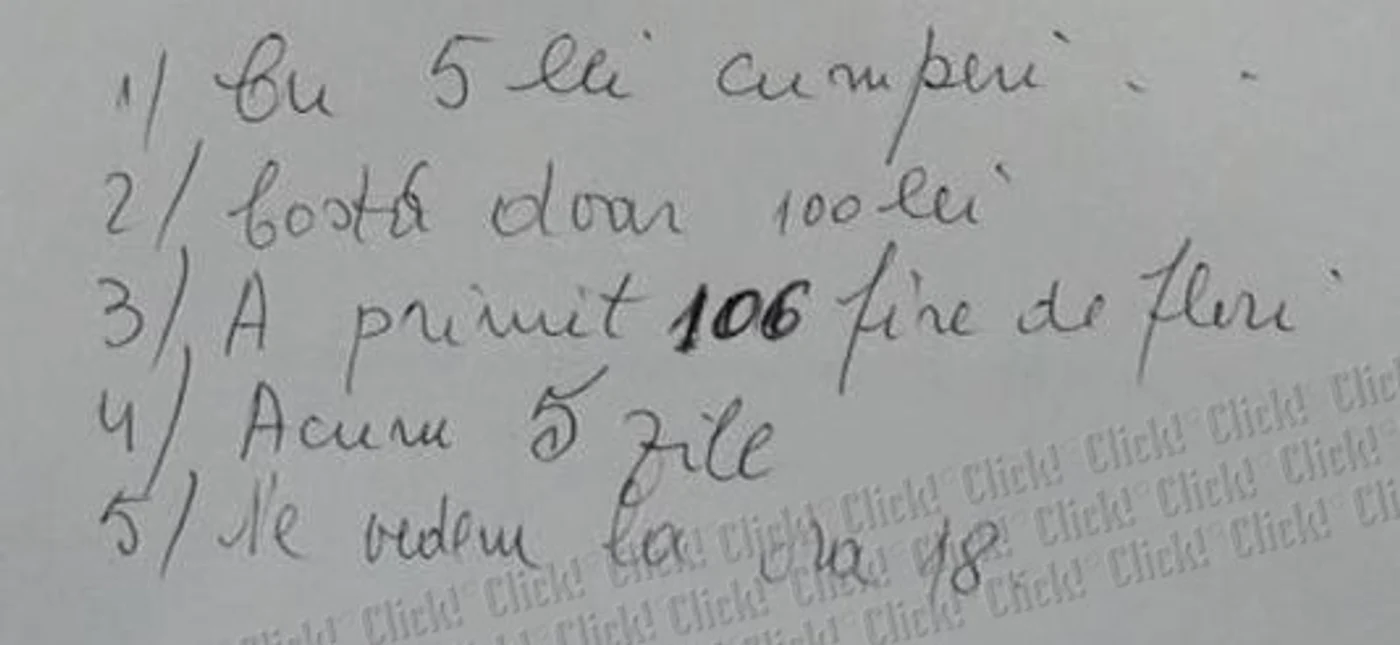 1/ Cu 5 lei cumperi . .
2/ Costă doar 100 lei
3/ A primit 106 fire de flori
4/ Acum 5 zile
5/ Ne vedem la ora 18
Click! Click! Click! Click! Click! Click! Click! Click! Click!
Click! Click! Click! Click! Click! Click! Click!
Click! Click! Click! Click! Click! Cli